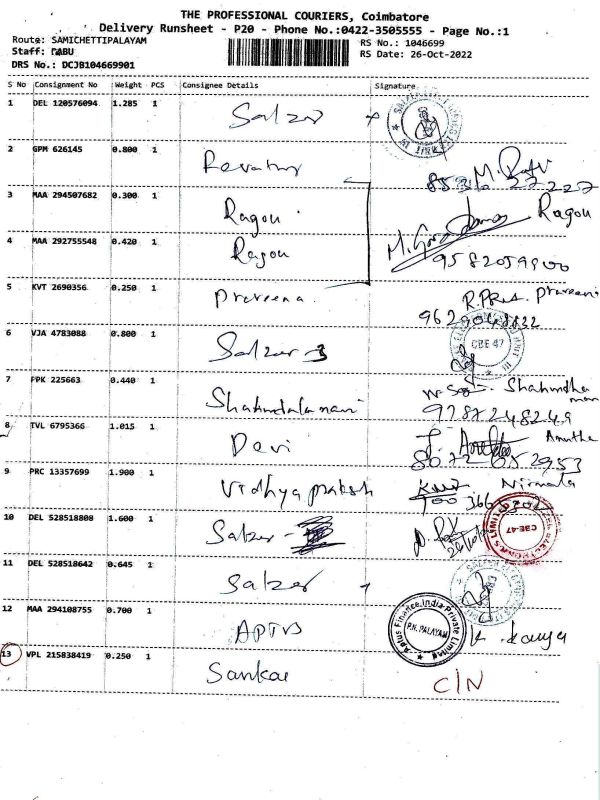 THE PROFESSIONAL COURIERS, Coimbatore
Delivery Runsheet - P20 - Phone No.:0422-3505555 - Page No.:1
Route: SAMICHETTIPALAYAM
RS No.: 1046699
Staff: BABU
RS Date: 26-Oct-2022
DRS No.: DCJB104669901
S No Consignment No Weight PCS Consignee Details Signature
1 DEL 120576094 1.285 1 Salzer
2 GPM 626145 0.800 1 Revathy
3 MAA 294507682 0.300 1 Ragou Ragou
4 MAA 292755548 0.420 1 Ragou
9582059800
5 KVT 2690356 0.250 1 Praveena
6 VJA 4783088 0.800 1 Salzer - 3 CBE 47
7 PPK 225663 0.440 1 Shakundalamani
9787248249
8 TVL 6795366 1.015 1 Devi
9 PRC 13357699 1.900 1 Vidhya prakash Nirmala
10 DEL 528518808 1.600 1 Salzer - CBE-47
11 DEL 528518642 0.645 1 Salzer
12 MAA 294108755 0.700 1 APTUS Aptus Finance India Private Limited P.N. PALAYAM
13 VPL 215838419 0.250 1 Sankar C/N